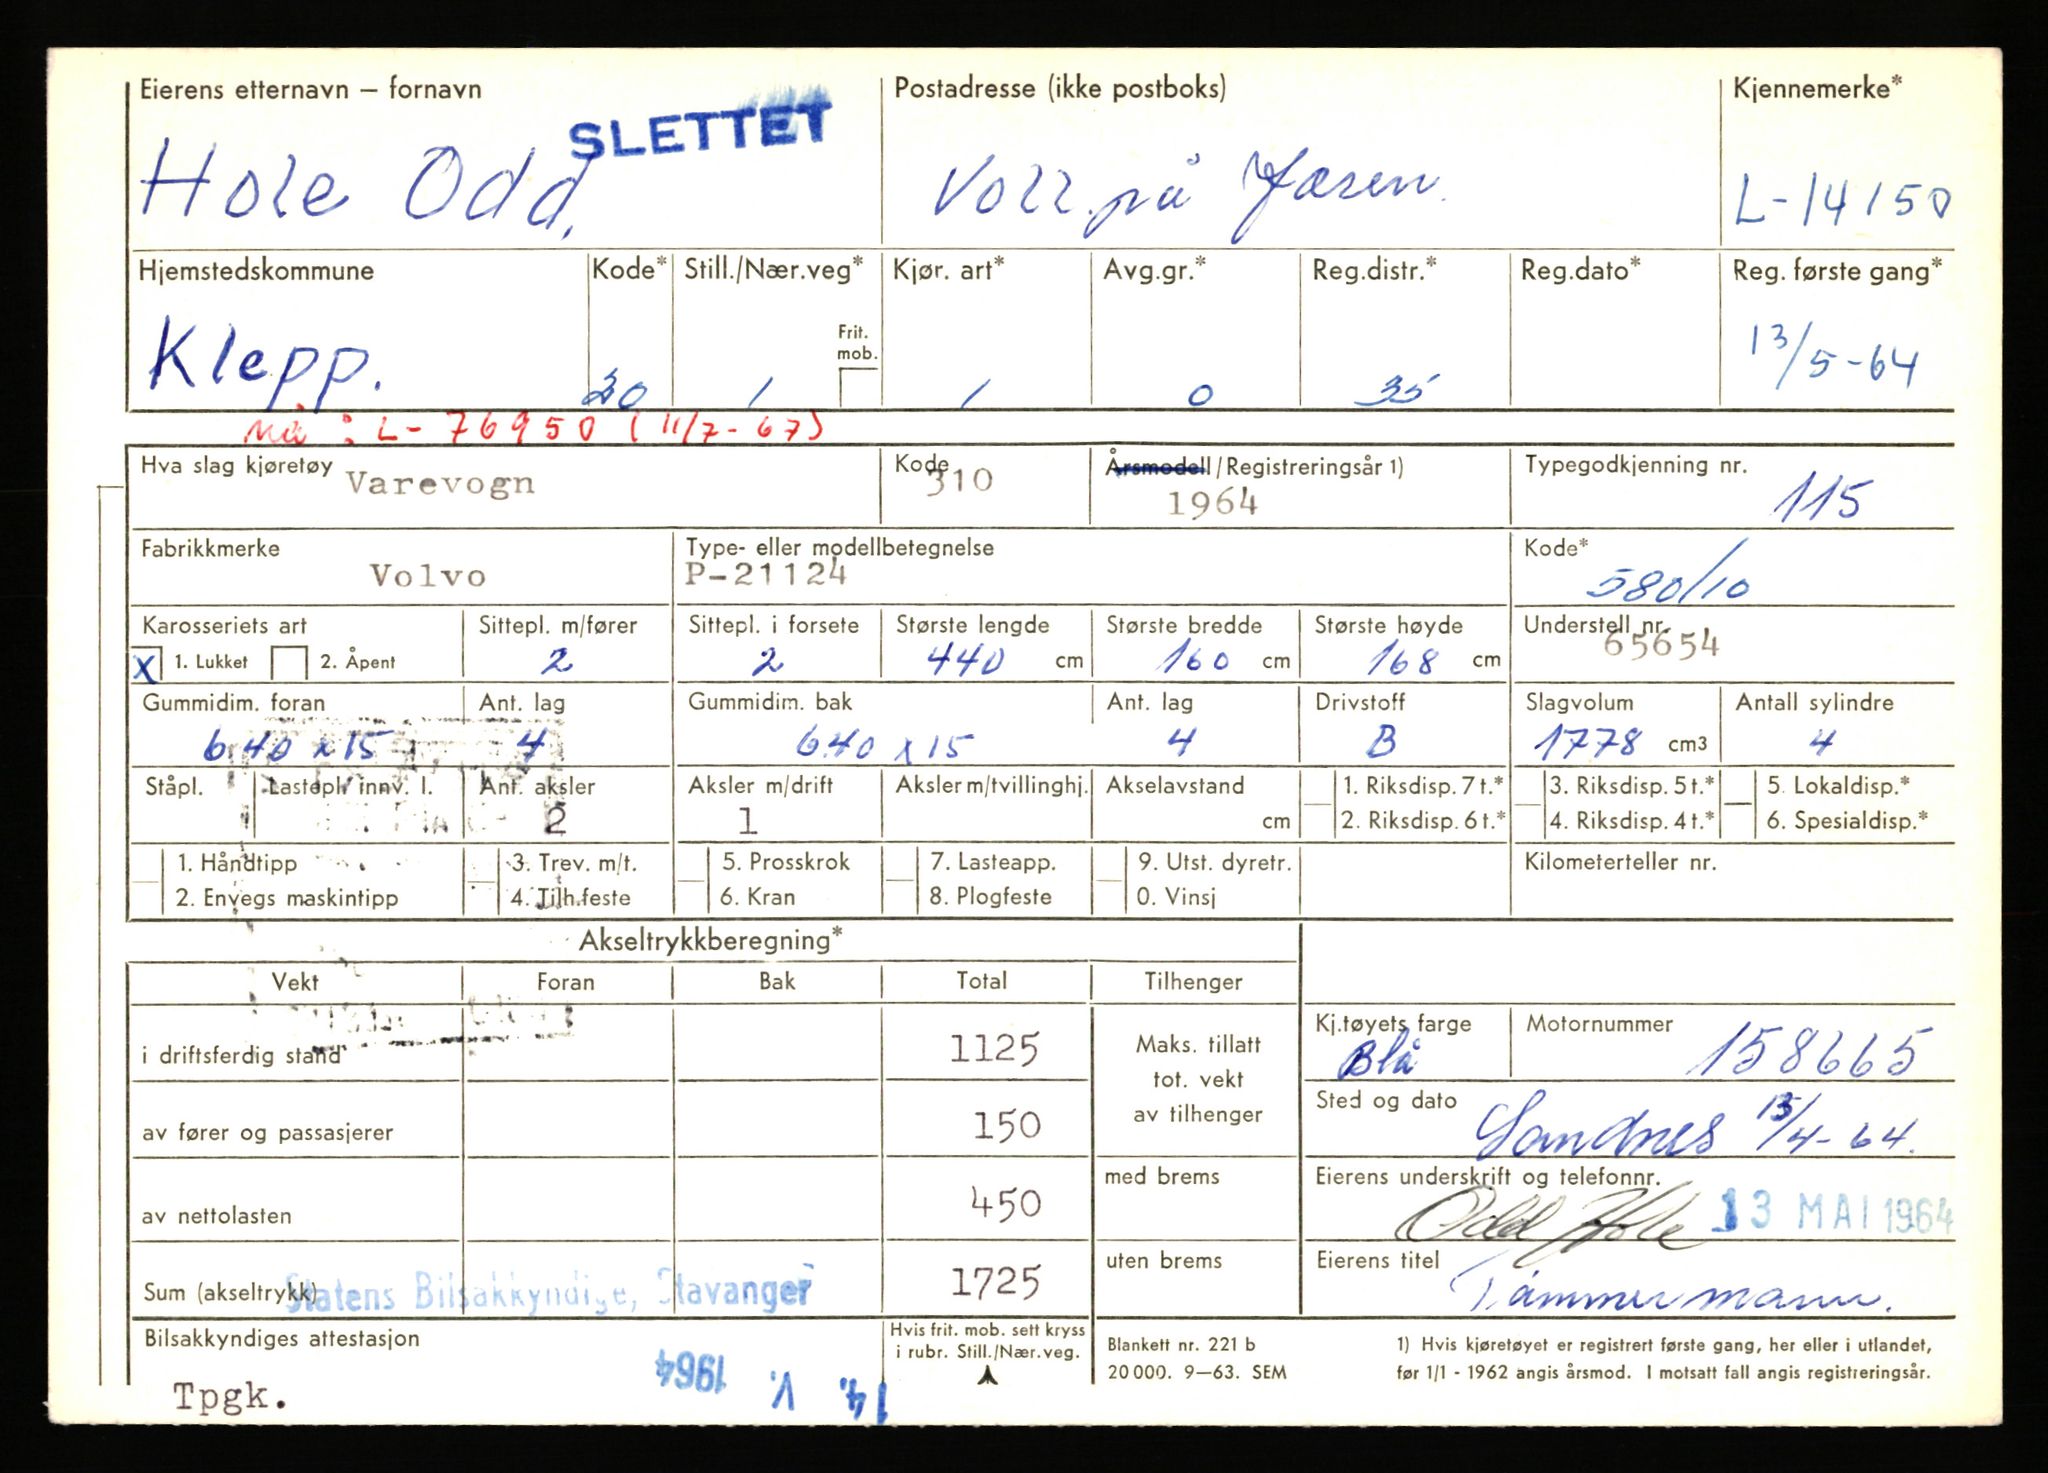 Eierens etternavn – fornavn
SLETTET
Postadresse (ikke postboks)
Kjennemerke*
Hole Odd,
Voll på Jæren.
L-14150
Hjemstedskommune
Kode*
Still./Nær.veg*
Kjør. art*
Avg.gr.*
Reg.distr.*
Reg.dato*
Reg. første gang*
Frit. mob.
Klepp.
20
1
1
0
35
13/5-64
Nå : L- 76950 (11/7-67)
Hva slag kjøretøy
Varevogn
Kode
310
Årsmodell/Registreringsår 1)
1964
Typegodkjenning nr.
115
Fabrikkmerke
Volvo
Type- eller modellbetegnelse
P-21124
Kode*
580/10
Karosseriets art
Sittepl. m/fører
Sittepl. i forsete
Største lengde
Største bredde
Største høyde
Understell nr.
65654
X 1. Lukket
2. Åpent
2
2
440 cm
160 cm
168 cm
Gummidim. foran
Ant. lag
Gummidim. bak
Ant. lag
Drivstoff
Slagvolum
Antall sylindre
640 x 15
4
640 x 15
4
B
1778 cm3
4
Ståpl.
Lastepl. innv. l.
Ant. aksler
Aksler m/drift
Aksler m/tvillinghj.
Akselavstand
1. Riksdisp. 7 t.*
3. Riksdisp. 5 t.*
5. Lokaldisp.*
2
1
cm
2. Riksdisp. 6 t.*
4. Riksdisp. 4 t.*
6. Spesialdisp.*
1. Håndtipp
3. Trev. m/t.
5. Prosskrok
7. Lasteapp.
9. Utst. dyretr.
Kilometerteller nr.
2. Envegs maskintipp
4. Tilh.feste
6. Kran
8. Plogfeste
0. Vinsj
Akseltrykkberegning*
Vekt
Foran
Bak
Total
Tilhenger
i driftsferdig stand
1125
Maks. tillatt
tot. vekt
av tilhenger
Kj.tøyets farge
Blå
Motornummer
158665
av fører og passasjerer
150
Sted og dato
Sandnes 13/4-64.
av nettolasten
450
med brems
Eierens underskrift og telefonnr.
Odd Hole
13 MAI 1964
Sum (akseltrykk)
Statens Bilsakkyndige, Stavanger
1725
uten brems
Eierens titel
Tømmermann.
Bilsakkyndiges attestasjon
Hvis frit. mob. sett kryss
i rubr. Still./Nær.veg.
Blankett nr. 221 b
20 000. 9–63. SEM
1) Hvis kjøretøyet er registrert første gang, her eller i utlandet,
før 1/1 - 1962 angis årsmod. I motsatt fall angis registreringsår.
Tpgk.
14. V. 1964